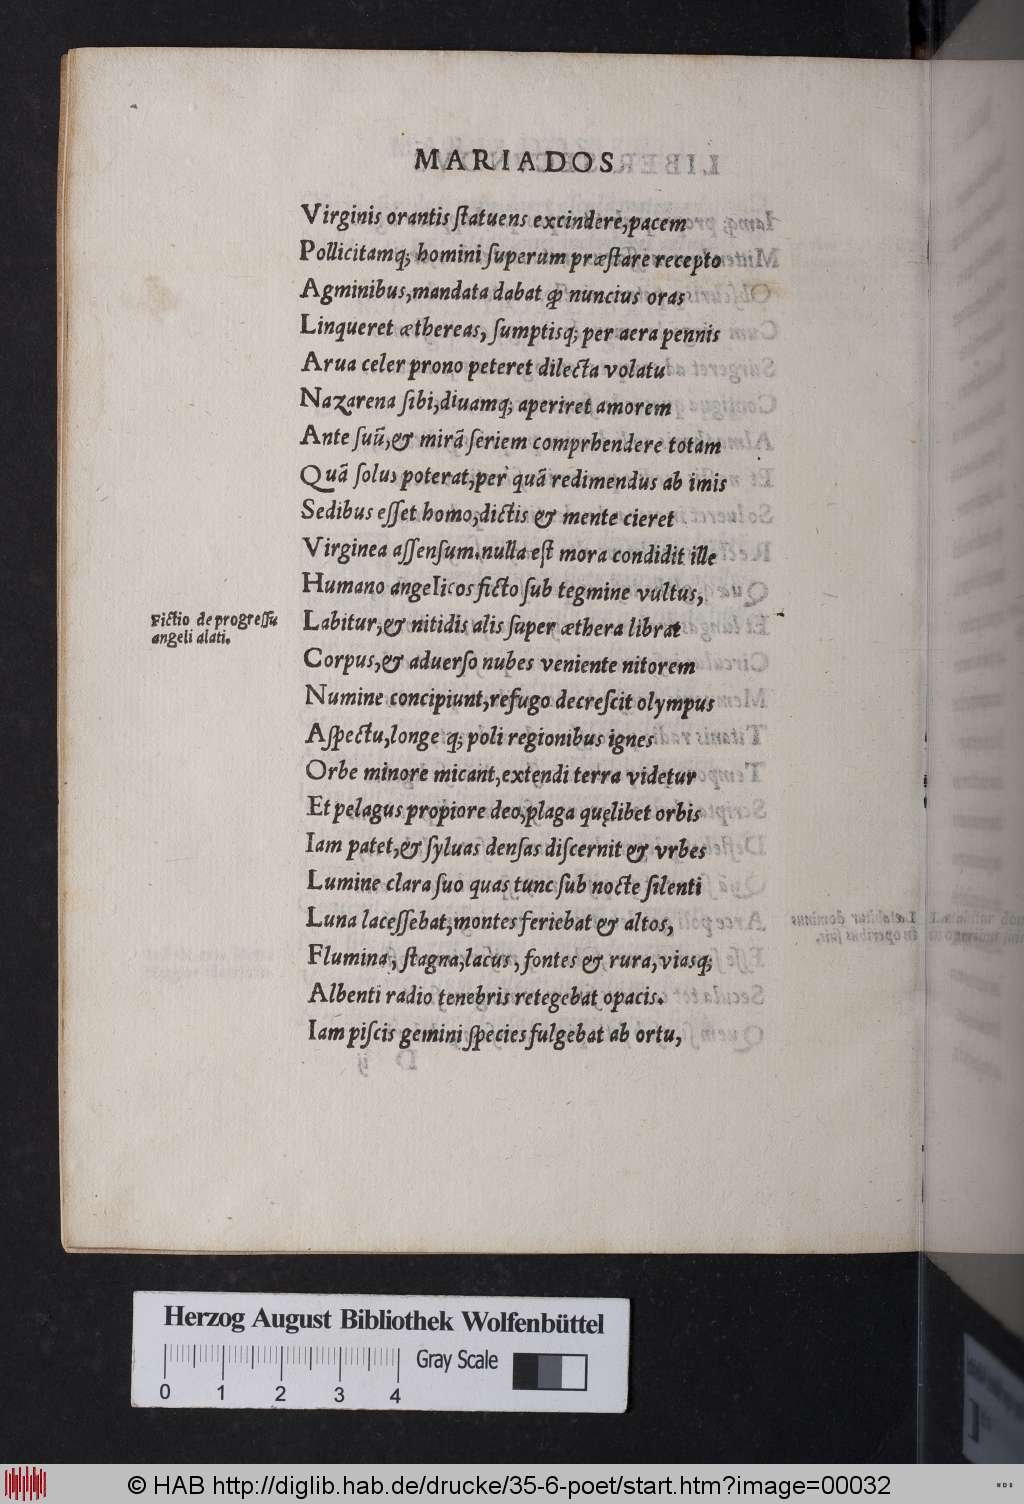 MARIADOS
Virginis orantis ſtatuens excindere, pacem
Pollicitamq; homini ſuperum præſtare recepto
Agminibus, mandata dabat ꝙ nuncius oras
Linqueret æthereas, ſumptisq; per aera pennis
Arua celer prono peteret dilecta volatu
Nazarena ſibi, diuamq; aperiret amorem
Ante ſuū, & mirā ſeriem comprhendere totam
Quā ſolus poterat, per quā redimendus ab imis
Sedibus eſſet homo, dictis & mente cieret
Virginea aſſenſum. nulla eſt mora condidit ille
Humano angelicos ficto ſub tegmine vultus,
Fictio de progreſſu
angeli alati.
Labitur, & nitidis alis ſuper æthera librat
Corpus, & aduerſo nubes veniente nitorem
Numine concipiunt, refugo decreſcit olympus
Aſpectu, longe q; poli regionibus ignes
Orbe minore micant, extendi terra videtur
Et pelagus propiore deo, plaga quęlibet orbis
Iam patet, & ſyluas denſas diſcernit & vrbes
Lumine clara ſuo quas tunc ſub nocte ſilenti
Luna laceſſebat, montes feriebat & altos,
Flumina, ſtagna, lacus, fontes & rura, viasq;
Albenti radio tenebris retegebat opacis.
Iam piſcis gemini ſpecies fulgebat ab ortu,
Herzog August Bibliothek Wolfenbüttel
0 1 2 3 4
Gray Scale
© HAB http://diglib.hab.de/drucke/35-6-poet/start.htm?image=00032